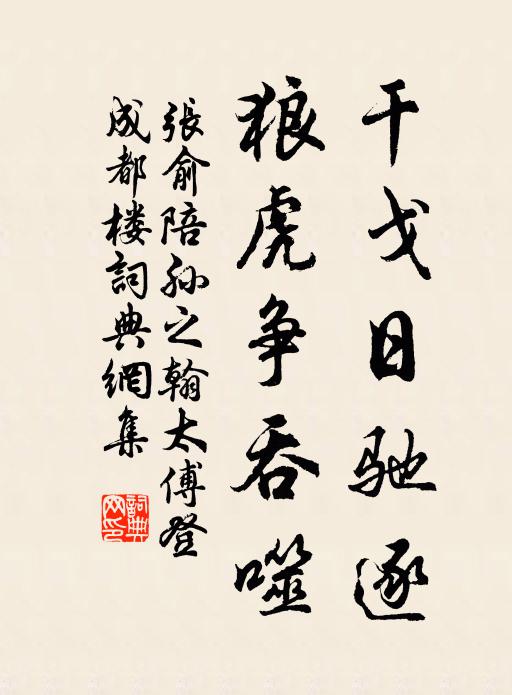 干戈日驰逐
狼虎争吞噬
張俞陪孙之翰太傅登
成都楼詞典網集
詞典网印